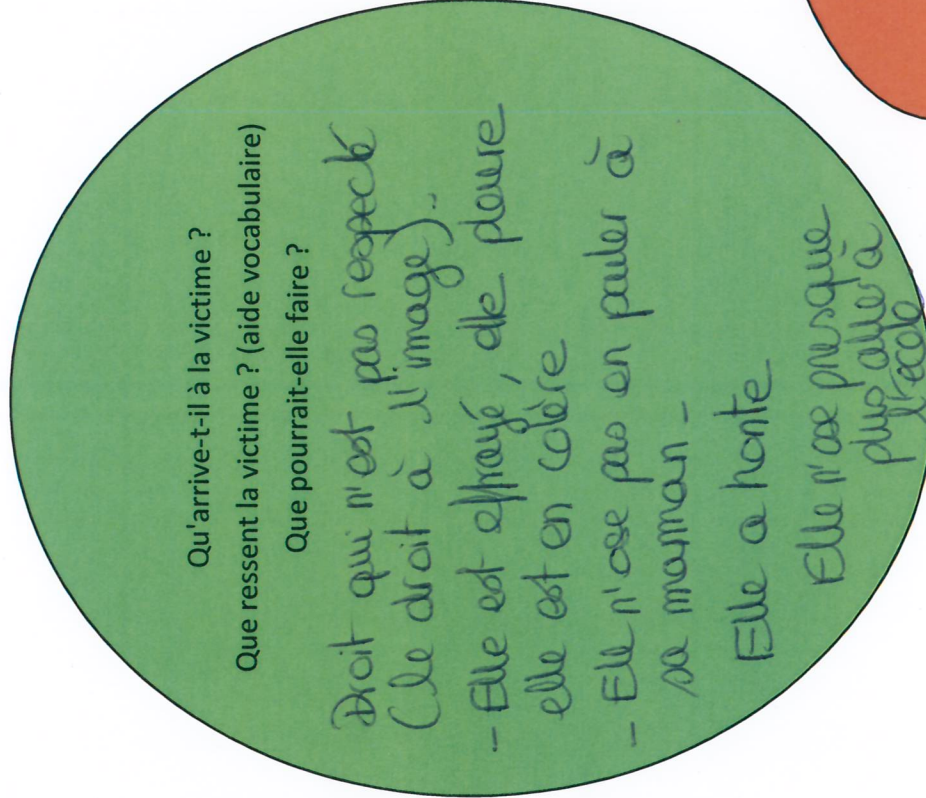 Qu'arrive-t-il à la victime ?
Que ressent la victime ? (aide vocabulaire)
Que pourrait-elle faire ?
Droit qui n'est pas respecté
(le droit à l'image).
- Elle est effrayé, elle pleure
elle est en colère
- Elle n'ose pas en parler à
sa maman -
Elle a honte
Elle n'ose presque
plus aller à
l'école